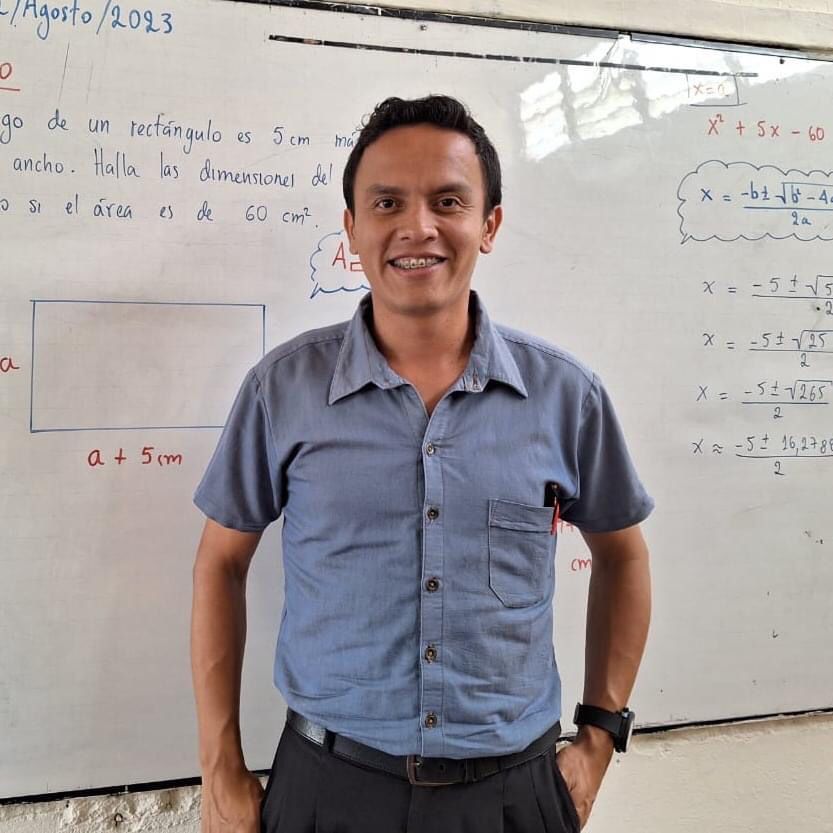 /Agosto/2023
go de un rectángulo es 5 cm má
ancho. Halla las dimensiones del
si el área es de 60 cm².
A=
a
a + 5cm
cm
x=a
x² + 5x - 60
x = -b ± √b² - 4a / 2a
x = -5 ± √5 / 2
x = -5 ± √25 / 2
x = -5 ± √265 / 2
x ≈ -5 ± 16,278 / 2